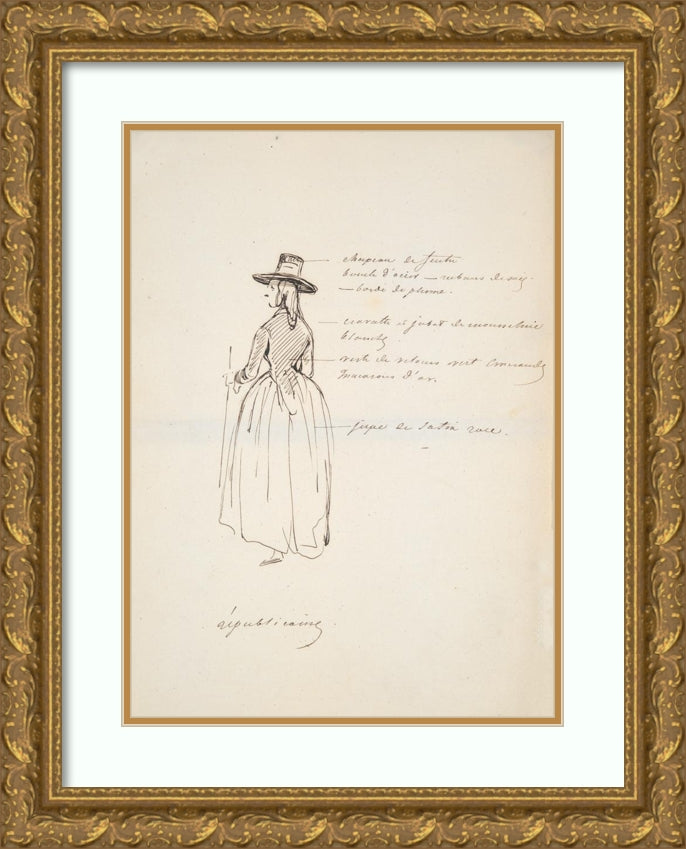 chapeau de feutre
boucle d'acier — rubans de soie.
— bordé de plume.
cravatte et jabot de mousseline
blanche
veste de velours vert émeraude
macarons d'or.
jupe de satin rose.
républicaine